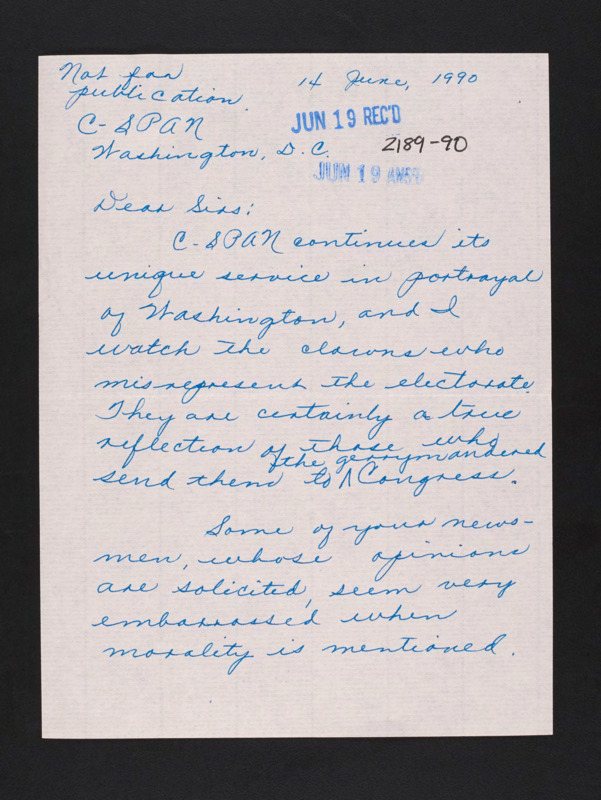 Not for
publication.
14 June, 1990
C-SPAN
JUN 19 REC'D
Washington, D.C.
2189-90
JUN 19 ANS'D
Dear Sirs:
C-SPAN continues its
unique service in portrayal
of Washington, and I
watch the clowns who
misrepresent the electorate.
They are certainly a true
reflection of those who
send them to ^ the gerrymandered Congress.
Some of your news-
men, whose opinions
are solicited, seem very
embarrassed when
morality is mentioned.